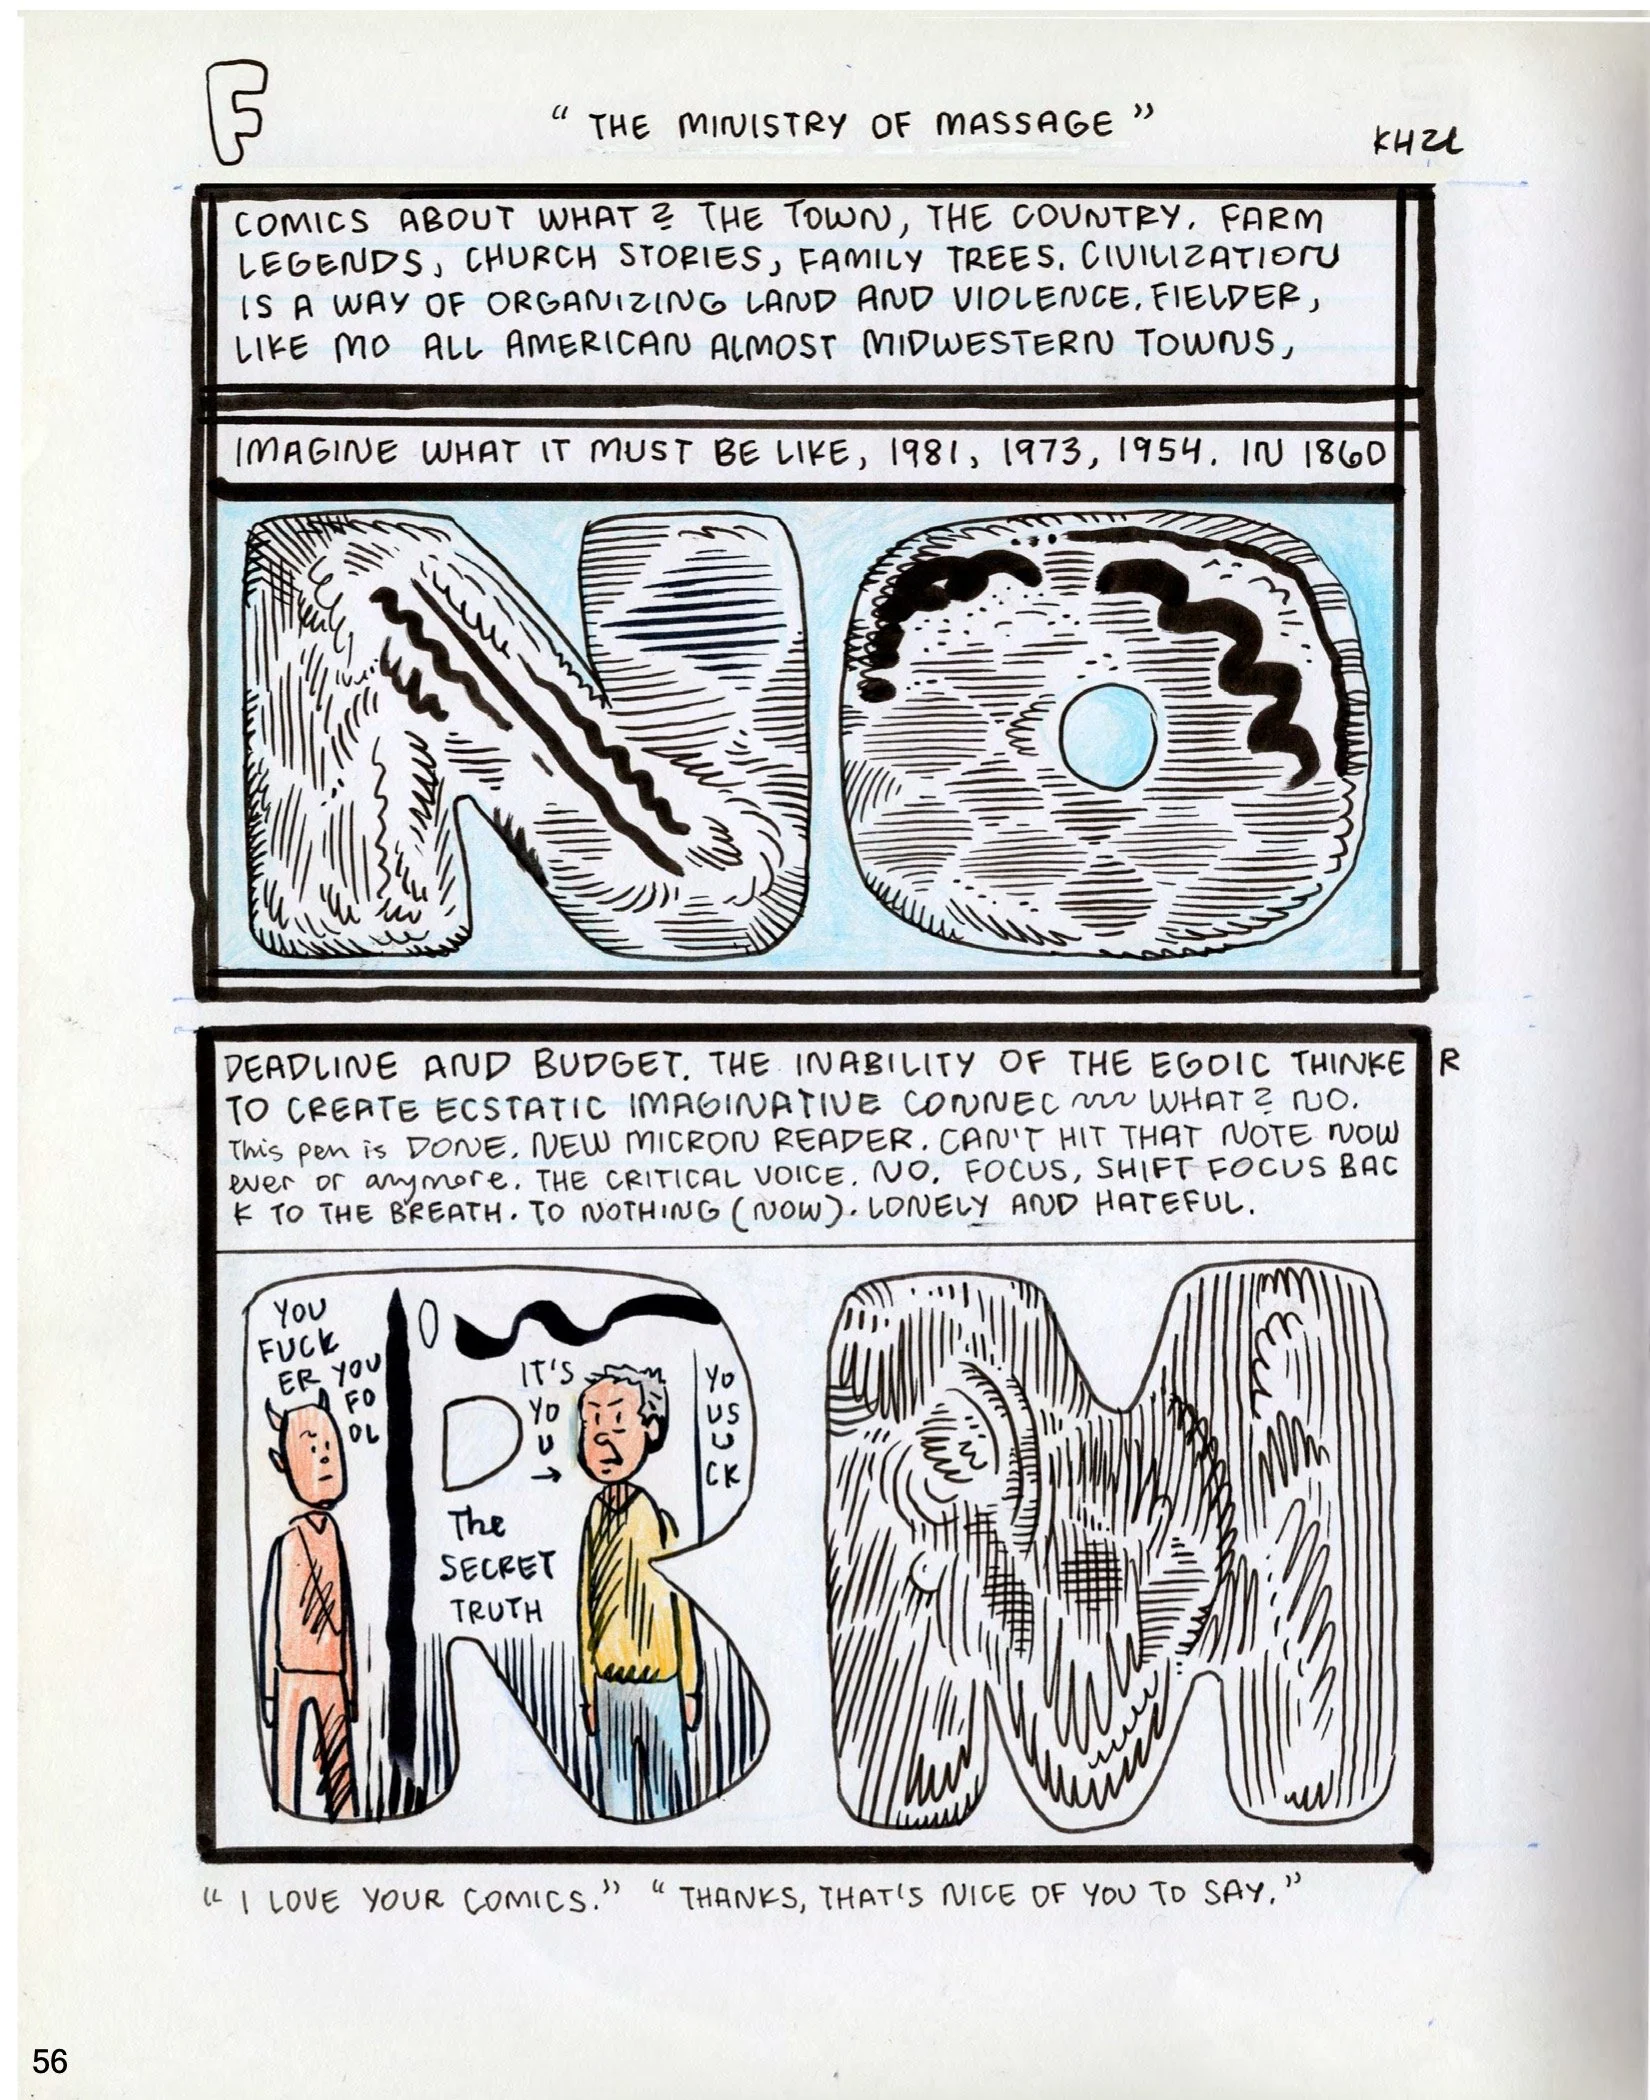 F
"THE MINISTRY OF MASSAGE"
KH21
COMICS ABOUT WHAT? THE TOWN, THE COUNTRY. FARM
LEGENDS, CHURCH STORIES, FAMILY TREES. CIVILIZATION
IS A WAY OF ORGANIZING LAND AND VIOLENCE. FIELDER,
LIKE MO ALL AMERICAN ALMOST MIDWESTERN TOWNS,
IMAGINE WHAT IT MUST BE LIKE, 1981, 1973, 1954. IN 1860
NO
DEADLINE AND BUDGET. THE INABILITY OF THE EGOIC THINKE R
TO CREATE ECSTATIC IMAGINATIVE CONNEC WHAT? NO.
This pen is DONE. NEW MICRON READER. CAN'T HIT THAT NOTE NOW
ever or anymore. THE CRITICAL VOICE. NO. FOCUS, SHIFT FOCUS BAC
K TO THE BREATH. TO NOTHING (NOW). LONELY AND HATEFUL.
RM
YOU
FUCK
ER YOU
FO
OL
IT'S
YO
U
→
The
SECRET
TRUTH
YO
US
U
CK
"I LOVE YOUR COMICS." "THANKS, THAT'S NICE OF YOU TO SAY."
56